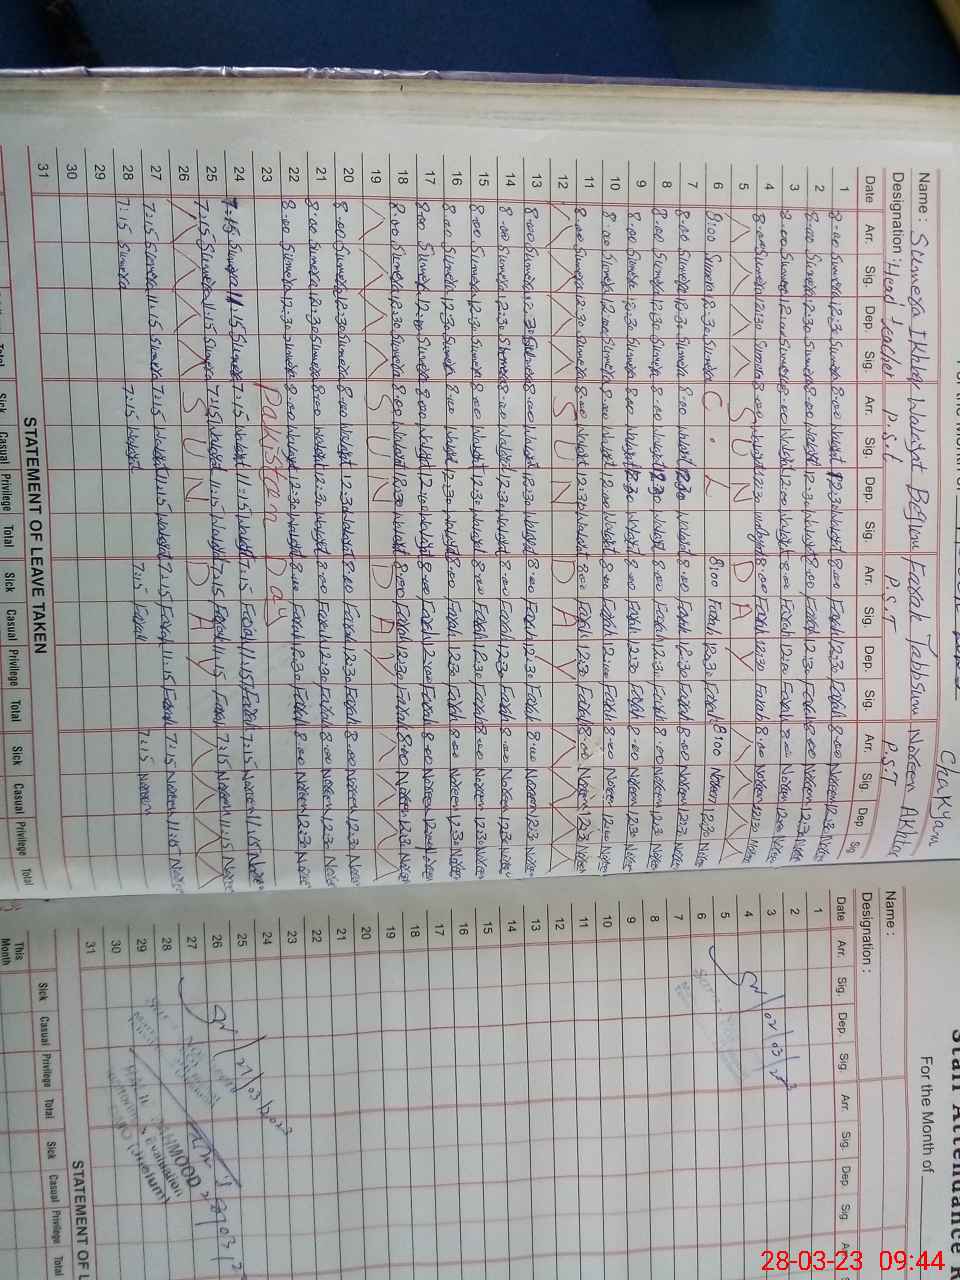 Chakyam
Name: Sumera Ikhlaq Walayat Begum Farah Tabbsum Noreen Akhtar
Designation: Head Teacher P.S.T P.S.T P.S.T
Date Arr. Sig. Dep. Sig. Arr. Sig. Dep. Sig. Arr. Sig. Dep. Sig. Arr. Sig. Dep Sig
1 8:00 Sumera 12:30 Sumera 8:00 Walayat 12:30 Walayat 8:00 Farah 12:30 Farah 8:00 Noreen 12:30 Noreen
2 8:00 Sumera 12:30 Sumera 8:00 Walayat 12:30 Walayat 8:00 Farah 12:30 Farah 8:00 Noreen 12:30 Noreen
3 8:00 Sumera 12:00 Sumera 8:00 Walayat 12:00 Walayat 8:00 Farah 12:00 Farah 8:00 Noreen 12:00 Noreen
4 8:00 Sumera 12:30 Sumera 8:00 Walayat 12:30 Walayat 8:00 Farah 12:30 Farah 8:00 Noreen 12:30 Noreen
5 S U N D A Y
6 8:00 Sumera 12:30 Sumera C. L 8:00 Farah 12:30 Farah 8:00 Noreen 12:30 Noreen
7 8:00 Sumera 12:30 Sumera 8:00 Walayat 12:30 Walayat 8:00 Farah 12:30 Farah 8:00 Noreen 12:30 Noreen
8 8:00 Sumera 12:30 Sumera 8:00 Walayat 12:30 Walayat 8:00 Farah 12:30 Farah 8:00 Noreen 12:30 Noreen
9 8:00 Sumera 12:30 Sumera 8:00 Walayat 12:30 Walayat 8:00 Farah 12:30 Farah 8:00 Noreen 12:30 Noreen
10 8:00 Sumera 12:00 Sumera 8:00 Walayat 12:00 Walayat 8:00 Farah 12:00 Farah 8:00 Noreen 12:00 Noreen
11 8:00 Sumera 12:30 Sumera 8:00 Walayat 12:30 Walayat 8:00 Farah 12:30 Farah 8:00 Noreen 12:30 Noreen
12 S U N D A Y
13 8:00 Sumera 12:30 Sumera 8:00 Walayat 12:30 Walayat 8:00 Farah 12:30 Farah 8:00 Noreen 12:30 Noreen
14 8:00 Sumera 12:30 Sumera 8:00 Walayat 12:30 Walayat 8:00 Farah 12:30 Farah 8:00 Noreen 12:30 Noreen
15 8:00 Sumera 12:30 Sumera 8:00 Walayat 12:30 Walayat 8:00 Farah 12:30 Farah 8:00 Noreen 12:30 Noreen
16 8:00 Sumera 12:30 Sumera 8:00 Walayat 12:30 Walayat 8:00 Farah 12:30 Farah 8:00 Noreen 12:30 Noreen
17 8:00 Sumera 12:00 Sumera 8:00 Walayat 12:00 Walayat 8:00 Farah 12:00 Farah 8:00 Noreen 12:00 Noreen
18 8:00 Sumera 12:30 Sumera 8:00 Walayat 12:30 Walayat 8:00 Farah 12:30 Farah 8:00 Noreen 12:30 Noreen
19 S U N D A Y
20 8:00 Sumera 12:30 Sumera 8:00 Walayat 12:30 Walayat 8:00 Farah 12:30 Farah 8:00 Noreen 12:30 Noreen
21 8:00 Sumera 12:30 Sumera 8:00 Walayat 12:30 Walayat 8:00 Farah 12:30 Farah 8:00 Noreen 12:30 Noreen
22 8:00 Sumera 12:30 Sumera 8:00 Walayat 12:30 Walayat 8:00 Farah 12:30 Farah 8:00 Noreen 12:30 Noreen
23 Pakistan Day
24 7:15 Sumera 11:15 Sumera 7:15 Walayat 11:15 Walayat 7:15 Farah 11:15 Farah 7:15 Noreen 11:15 Noreen
25 7:15 Sumera 11:15 Sumera 7:15 Walayat 11:15 Walayat 7:15 Farah 11:15 Farah 7:15 Noreen 11:15 Noreen
26 S U N D A Y
27 7:15 Sumera 11:15 Sumera 7:15 Walayat 11:15 Walayat 7:15 Farah 11:15 Farah 7:15 Noreen 11:15 Noreen
28 7:15 Sumera 7:15 Walayat 7:15 Farah 7:15 Noreen
29
30
31
STATEMENT OF LEAVE TAKEN
Sick Casual Privilege Total Sick Casual Privilege Total Sick Casual Privilege Total
Staff Attendance R
For the Month of
Name:
Designation:
Date Arr. Sig. Dep. Sig. Arr. Sig. Dep Sig.
1
2
3
4
02/03/23
5
6
7
8
9
10
11
12
13
14
15
16
17
18
19
20
21
22
23
24
25
27/03/2023
26
27
28
29
30
31
MEHMOOD
Evaluation
(Jhelum)
STATEMENT OF L
Sick Casual Privilege Total Sick Casual Privilege Total
This Month
28-03-23 09:44